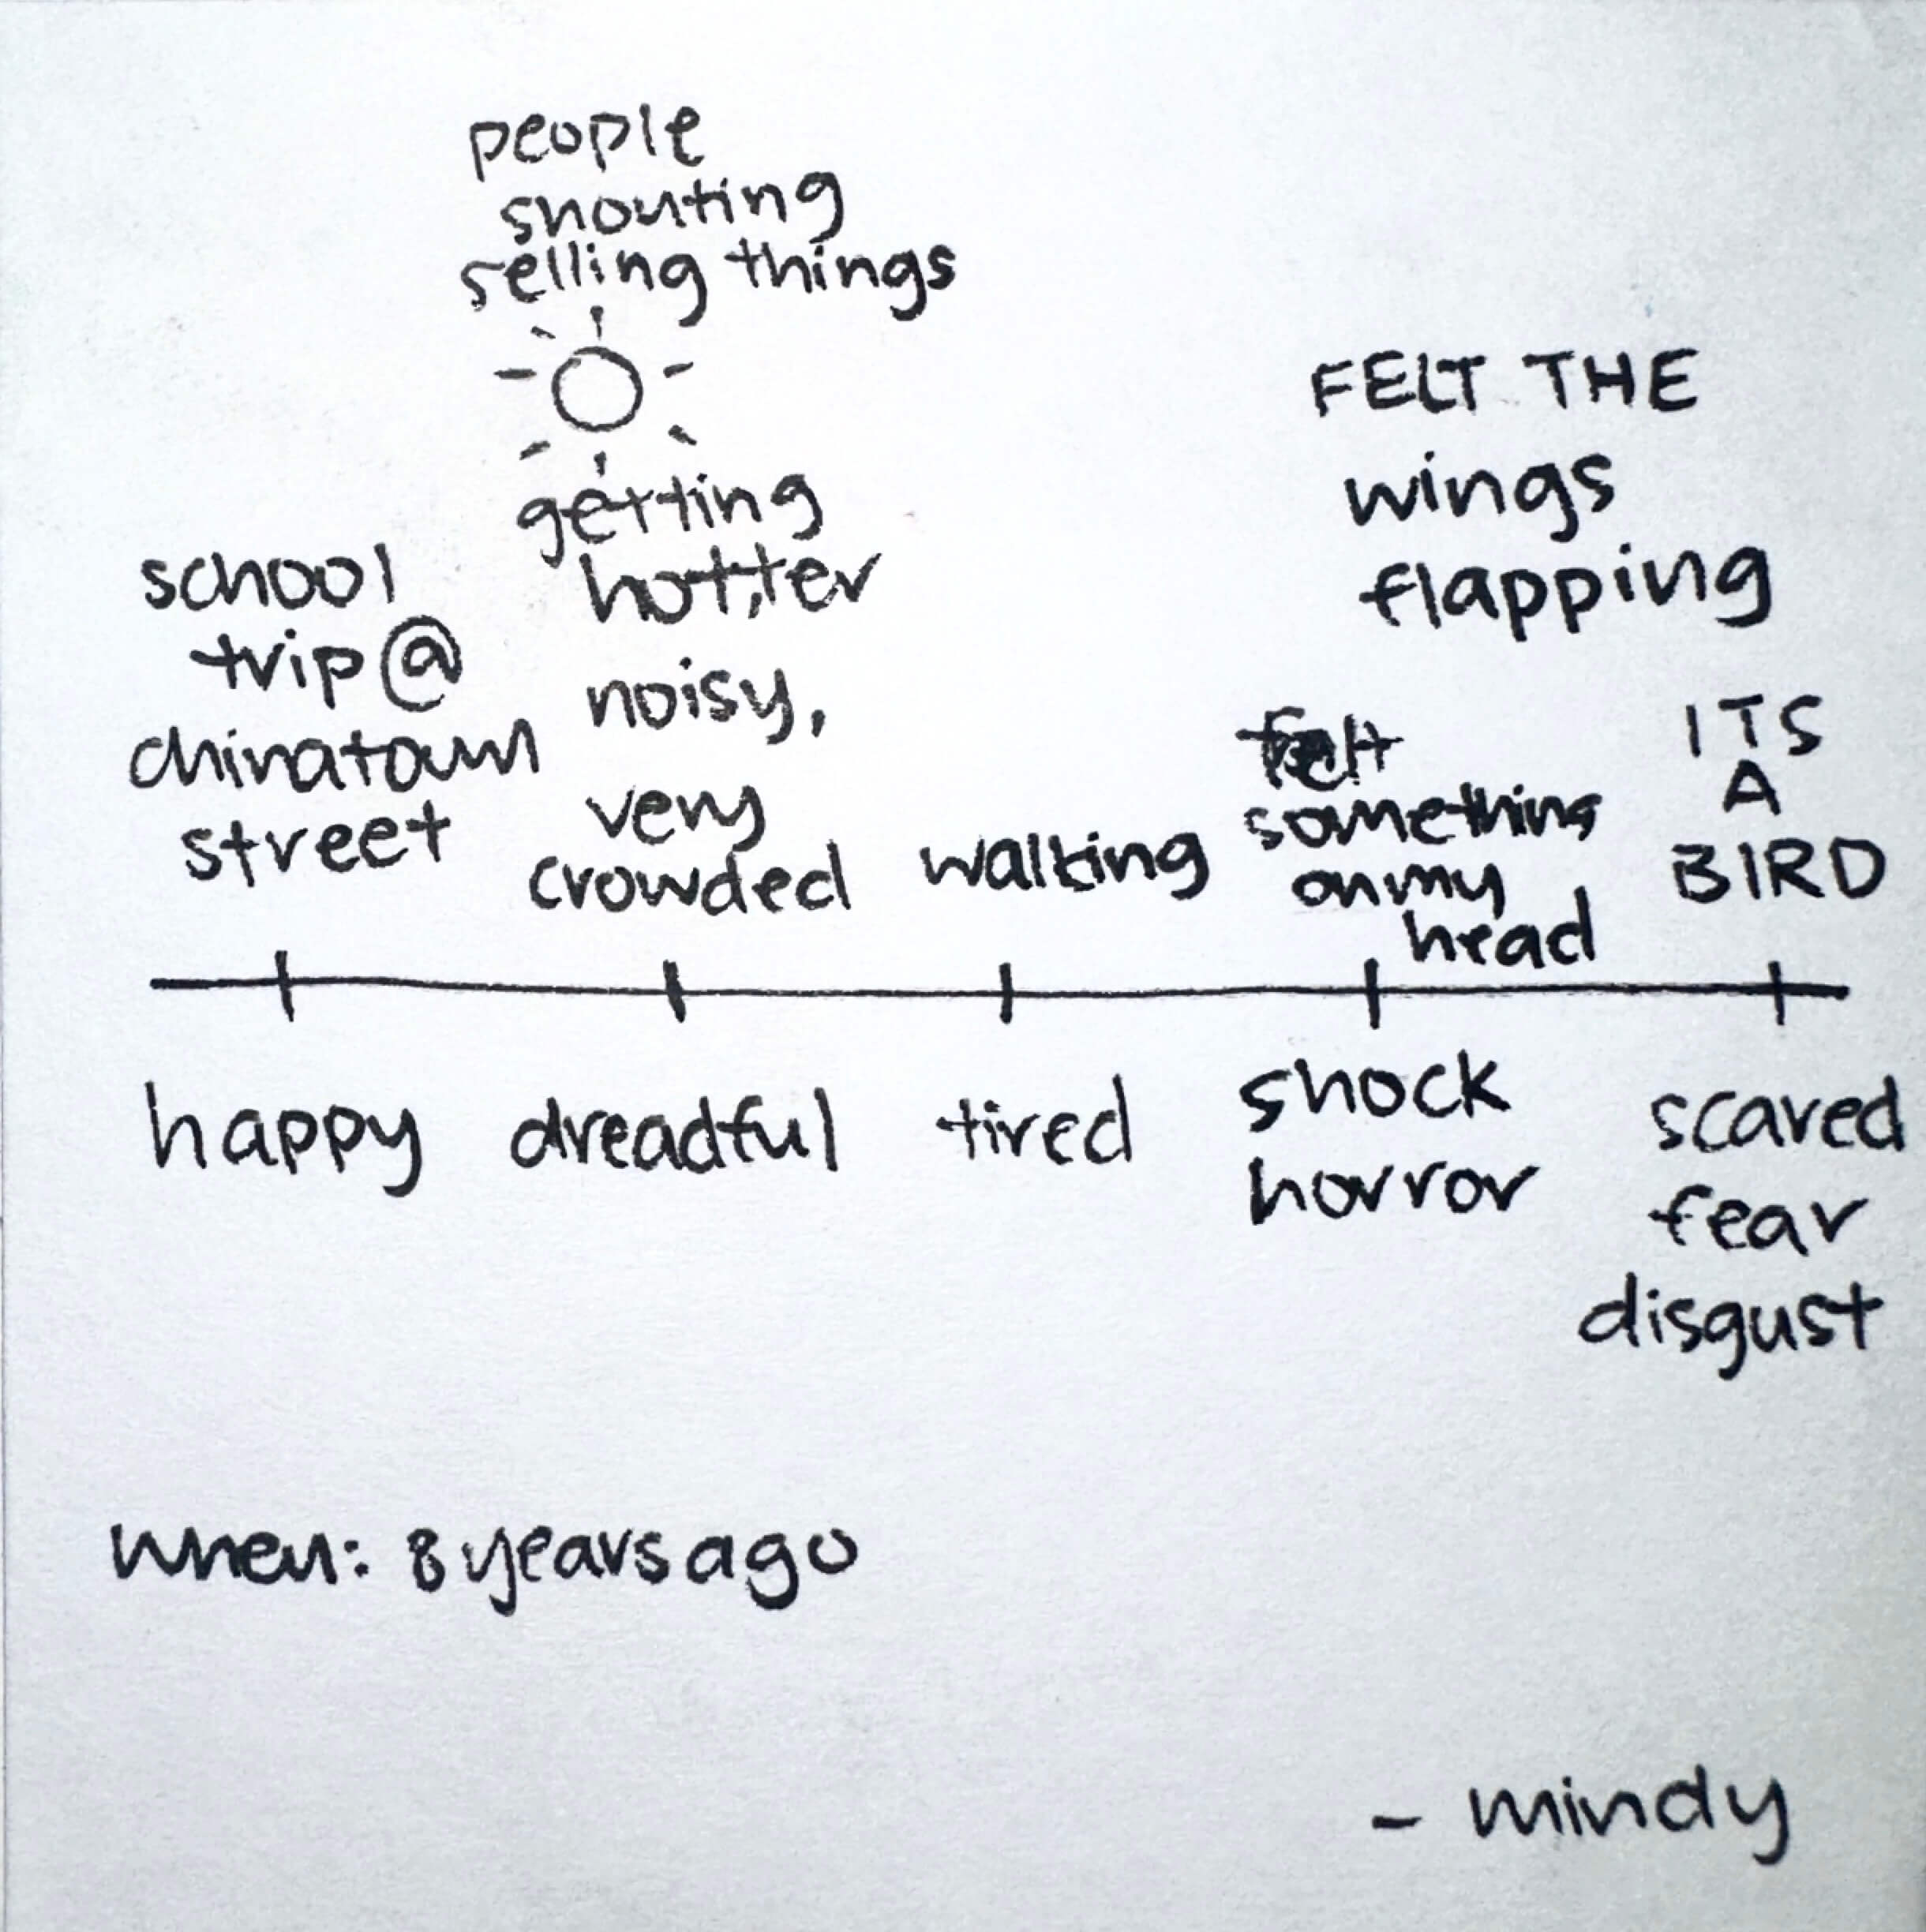 people
shouting
selling things
getting
hotter
noisy,
very
crowded
school
trip @
chinatown
street
walking
FELT THE
wings
flapping
felt
something
on my
head
ITS
A
BIRD
happy
dreadful
tired
shock
horror
scared
fear
disgust
when: 8 years ago
- mindy